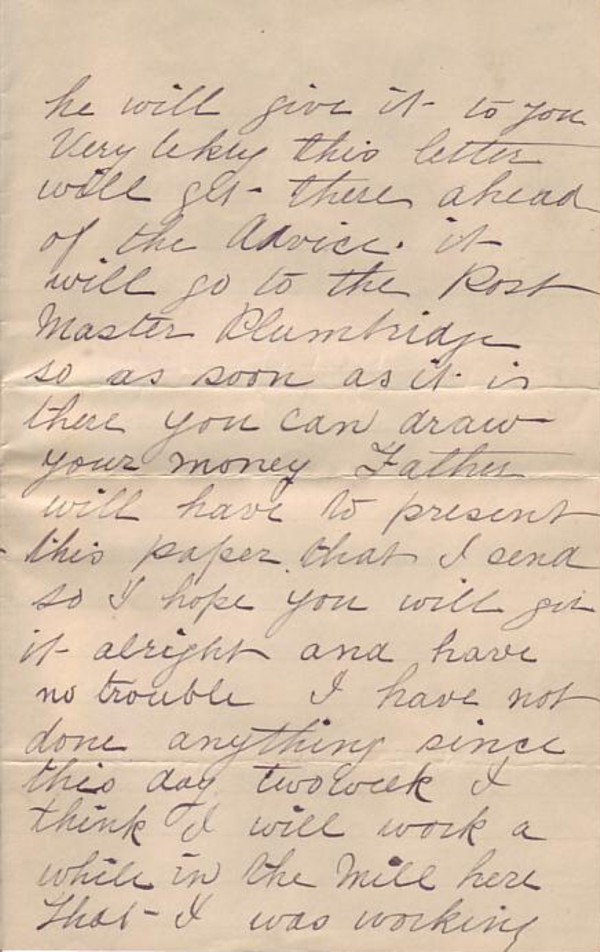 he will give it to you
Very likely this letter
will get there ahead
of the Advice. it
will go to the Post
Master Plumbridge
so as soon as it is
there you can draw
your money Father
will have to present
this paper that I send
so I hope you will get
it alright and have
no trouble I have not
done anything since
this day two week I
think I will work a
while in the Mill here
that I was working